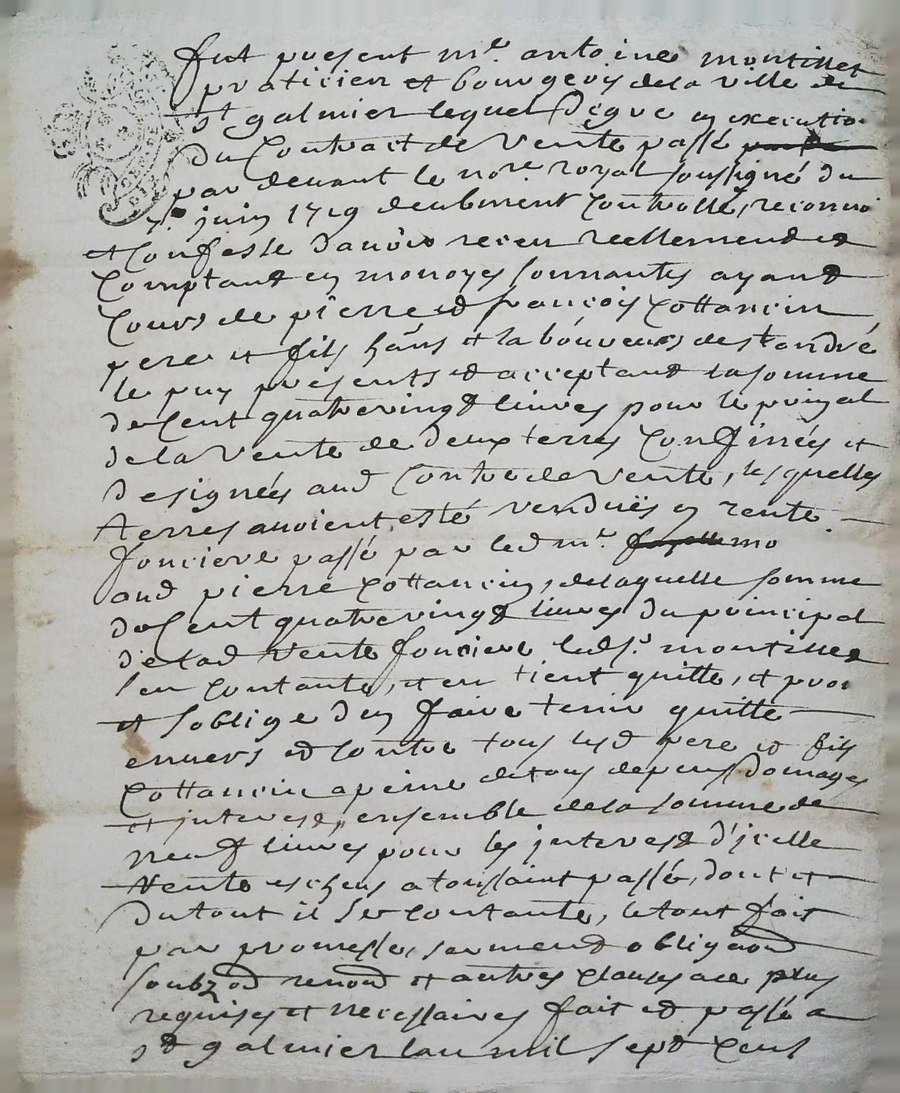 fut present mr. antoine montillet
praticien et bourgeois de la ville de
st galmier lequel de gre en execution
du Contract de Vente passé
par devant le nore. royal soussigné du
juin 1719 deubment Controllé, reconnoi
et Confesse d'avoir receu reellement et
Comptant en monoyes sonnantes ayant
Cours de pierre et françois Cottancin
pere et fils et laboureurs de st andré
le puy presents et acceptant la somme
de Cent quatrevingt livres pour le prinpal
de la Vente de deux terres Confinées et
designées aud Contrac de Vente, lesquelles
terres avoient esté venduës en rente
fonciere passé par led mr. mo
aud pierre Cottancin, de laquelle somme
de Cent quatrevingt livres du principal
de lad Vente fonciere led sr. montillet
s'en contante, et en tient quitte, et pro
et s'oblige d'en faire tenir quitte
envers et contre tous lesd pere et fils
Cottancin a peine de tous depens domages
et interest, ensemble de la somme de
neuf livres pour les interest d'icelle
Vente escheus a toussaint passé, dont et
du tout il se contante, le tout fait
par promesse, serment obligaon
soubzon renon et autres clauses a ce plus
requises et necessaires fait et passé a
st galmier l'an mil sept Cens